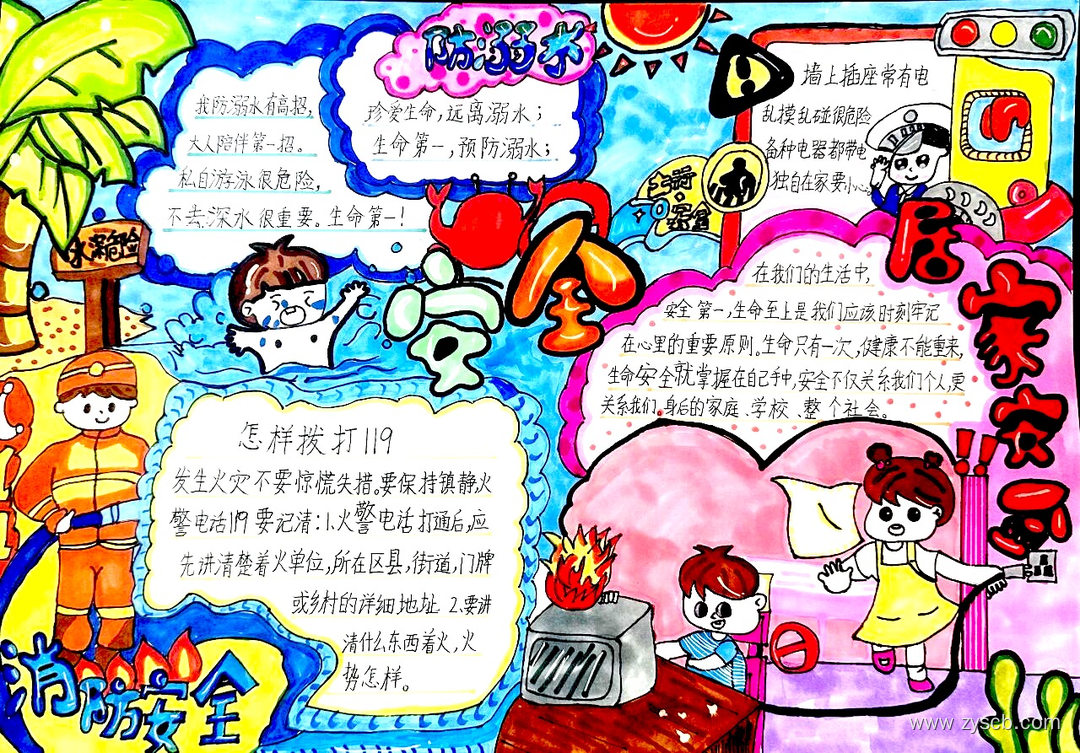 防溺水
我防溺水有高招,
大人陪伴第一招。
私自游泳很危险,
不去深水很重要。生命第一!
珍爱生命,远离溺水;
生命第一,预防溺水;
墙上插座常有电
乱摸乱碰很危险
各种电器都带电
独自在家要小心
水深危险
安全
居家安全
在我们的生活中,
安全第一,生命至上是我们应该时刻牢记
在心里的重要原则,生命只有一次,健康不能重来,
生命安全就掌握在自己手中,安全不仅关系我们个人,更
关系我们身后的家庭、学校、整个社会。
怎样拨打119
发生火灾不要惊慌失措。要保持镇静火
警电话119要记清:1.火警电话打通后,应
先讲清楚着火单位,所在区县,街道,门牌
或乡村的详细地址 2.要讲
清什么东西着火,火
势怎样。
消防安全
119
!!
www.zyscb.com